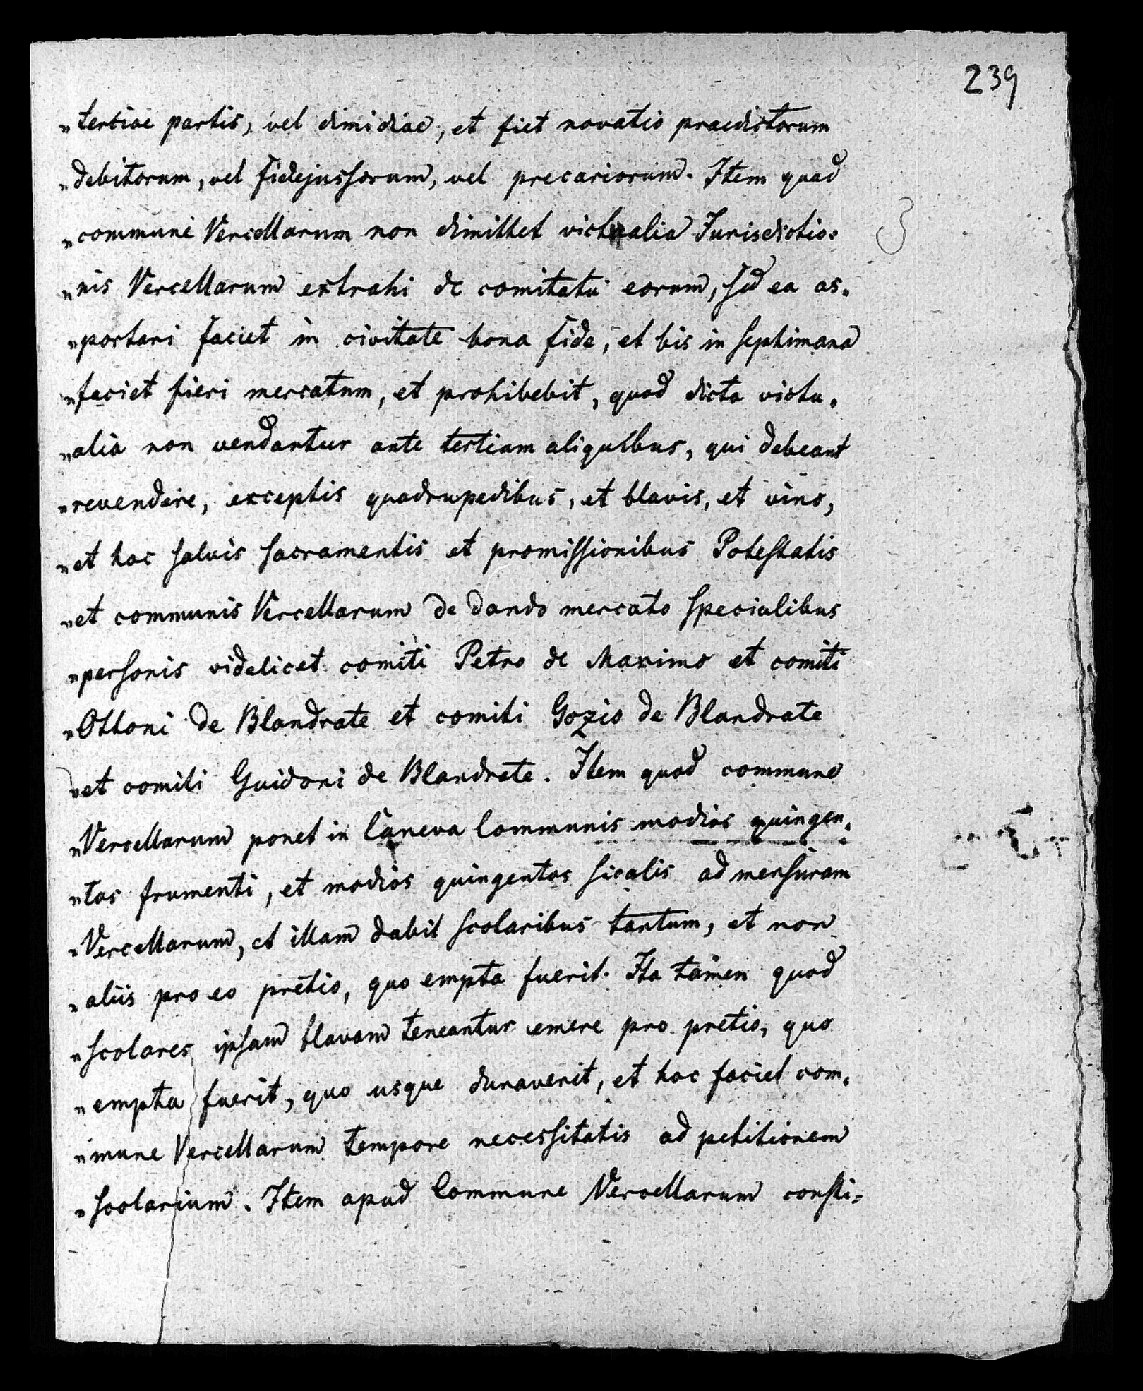 239
„tertiae partis, vel dimidiae, et fiet novatio praedictorum
„debitorum, vel fidejussorum, vel precariorum. Item quod
„commune Vercellarum non dimittet victualia Jurisdictio=
„nis Vercellarum extrahi de comitatu eorum, sed ea as=
„portari faciet in civitate bona fide, et bis in septimana
„faciet fieri mercatum, et prohibebit, quod dicta victu=
„alia non vendantur ante tertiam aliquibus, qui debeant
„revendere, exceptis quadrupedibus, et blavis, et vino,
„et hoc salvis sacramentis et promissionibus Potestatis
„et communis Vercellarum de dando mercato specialibus
„personis videlicet comiti Petro de Maximo et comiti
„Ottoni de Blandrate et comiti Gozio de Blandrate
„et comiti Guidoni de Blandrate. Item quod commune
„Vercellarum ponet in Caneva Communis modios quingen=
„tos frumenti, et modios quingentos sicalis ad mensuram
„Vercellarum, et illam dabit scolaribus tantum, et non
„aliis pro eo pretio, quo empta fuerit. Ita tamen quod
„scolares ipsam blavam teneantur emere pro pretio, quo
„empta fuerit, quo usque duraverit, et hoc faciet com=
„mune Vercellarum tempore necessitatis ad petitionem
„scolarium. Item apud Commune Vercellarum consti=